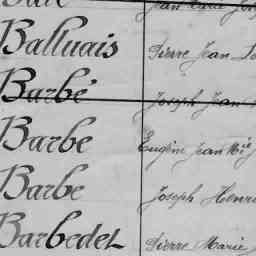 Balluais Pierre Jean
Barbé Joseph Jean
Barbe Eugène Jean Mie
Barbe Joseph Henri
Barbedet Pierre Marie